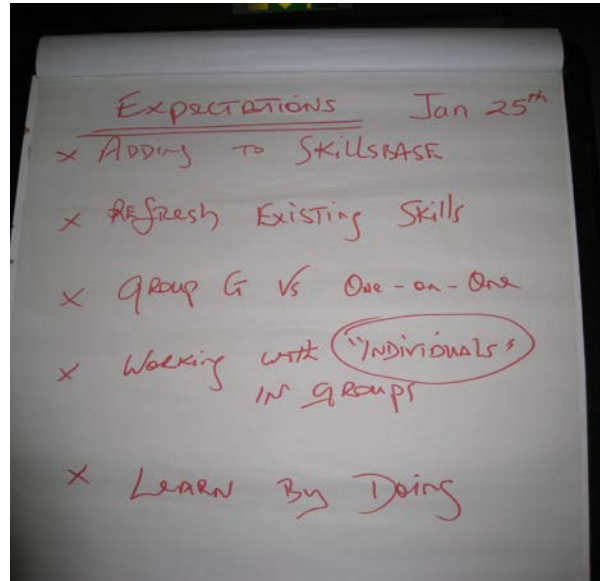 Expectations Jan 25th
x Adding to Skillsbase
x Refresh Existing Skills
x Group G Vs One-on-One
x Working with "Individuals"
in groups
x Learn By Doing